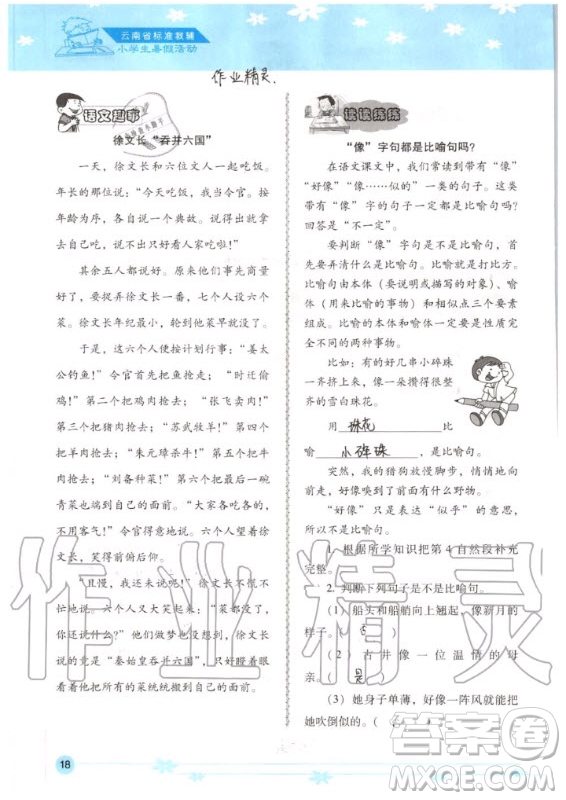 云南省标准教辅
小学生暑假活动
作业精灵.
语文趣事
徐文长“吞并六国”
一天，徐文长和六位文人一起吃饭。
年长的那位说：“今天吃饭，我做令官。按
年龄为序，各自说一个典故。说得出拿菜
去自己吃，说不出只好看人家吃啦！”
其余五人都说好。原来他们事先商量
好了，要整徐文长一番，七个人设了六个
菜。徐文长年纪最小，轮到他菜早就完啦！
于是，这六个人便按计划行事：“姜太
公钓鱼！”令官首先把鱼抢走；“时迁偷
鸡！”第二个把鸡肉抢去；“张飞卖肉！”
第三个把猪肉抢走；“苏武牧羊！”第四个
把羊肉抢去；“朱元璋杀牛！”第五个把牛
肉抢去；“刘备种菜！”第六个把最后一碗
青菜也移到自己的面前。“大家各吃各的，
不用客气！”令官得意地说。六个人望着徐
文长，笑得前俯后仰。
“且慢，我还没说呢！”徐文长不慌不
忙地说道。六个人又大笑起来：“没菜了，
你还说什么？”他们做梦也没想到，徐文长
说的是“秦始皇吞并六国！”只见他一边说，
一边把所有的菜统统搬到自己的面前。
读读练练
“像”字句都是比喻句吗？
在语文课文中，我们常读到带有“像”
“好像”“像……似的”一类的句子。这类
带有“像”字的句子一定都是比喻句吗？
回答是“不一定”。
要判断“像”字句是不是比喻句，首
先要弄清什么是比喻。比喻就是打比方。
比喻句由本体（要说明或描写的对象）、喻
体（用来比喻的事物）和相似点三个要素
组成。比喻的本体和喻体必须是性质完全
不同的两种事物。
比如：有的好几串小碎珠
一齐挤上来，成了一朵攒得整齐
的雪白珠花。
用 珠花 比
喻 小碎珠 ，是比喻句。
突然，我的猎狗放慢脚步，悄悄地向
前走，好像嗅到了前面有什么野物。
“好像”只是表达“似乎”的意思，
所以不是比喻句。
1. 根据所学知识把第 4 自然段补充
完整。
2. 判断下列句子是不是比喻句。
（1）船头和船艄向上翘起，像新月的
样子。（ ）
（2）古井像一位温情的母
亲。（ 是 ）
（3）她身子单薄，好像一阵风就能把
她吹倒似的。（ ）
作业精灵
答案圈
MXQE.COM
18